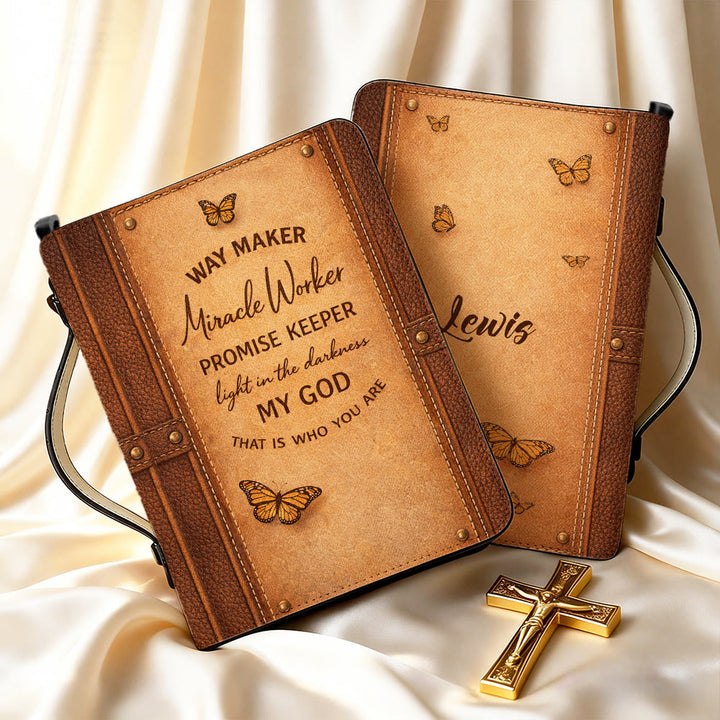 WAY MAKER
Miracle Worker
PROMISE KEEPER
light in the darkness
MY GOD
THAT IS WHO YOU ARE
Lewis